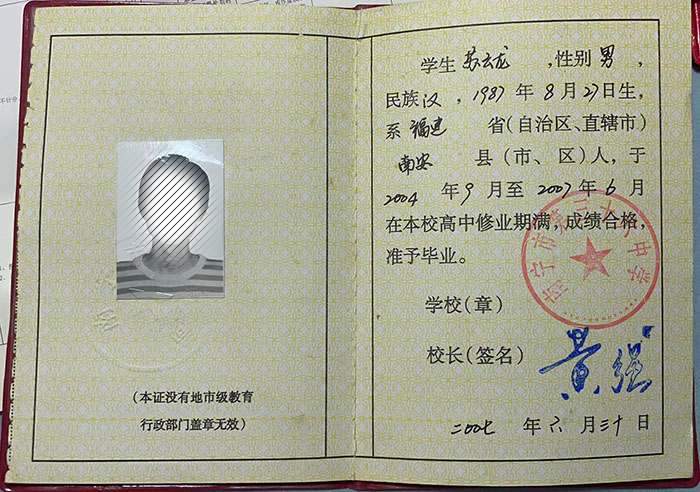 (本证没有地市级教育
行政部门盖章无效)
学生 苏云龙 ,性别 男 ,
民族汉 , 1987 年 8 月 27日生,
系 福建 省(自治区、直辖市)
南安 县(市、区)人, 于
2004 年 9 月至 2007 年 6 月
在本校高中修业期满,成绩合格,
准予毕业。
学校(章)
南宁市第三十八中学
校长(签名) 黄强
二00七 年 六 月 三十 日